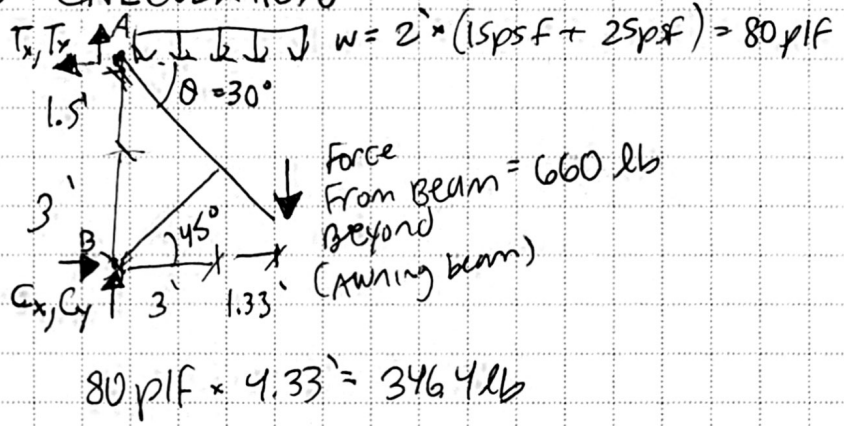 CALCULATION
Tx, Tx A w = 2' × (15psf + 25psf) = 80plf
θ = 30°
1.5'
Force
From Beam = 660 lb
Beyond
(Awning beam)
3'
B 45°
Cx, Cy 3' 1.33'
80 plf × 4.33' = 346.4lb